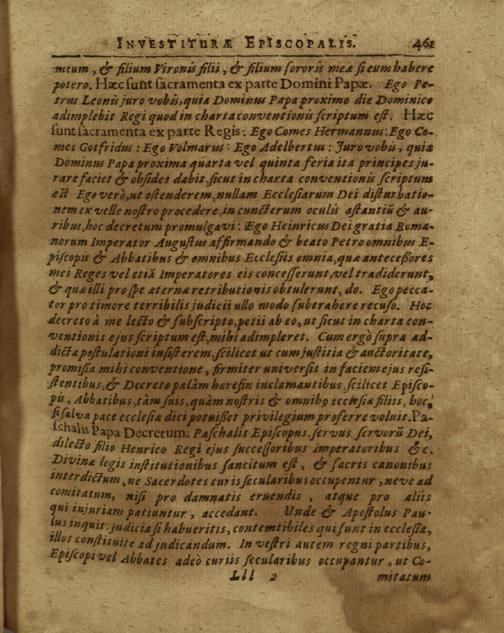 INVESTITURÆ EPISCOPALIS. 461
meum, & filium Vironis filii, & filium sororis meæ si eum habere
potero. Hæc sunt sacramenta ex parte Domini Papæ. Ego Pe-
trus Leonis juro vobis, quia Dominus Papa proximo die Dominico
adimplebit Regi quod in charta conventionis scriptum est. Hæc
sunt sacramenta ex parte Regis: Ego Comes Hermannus: Ego Co-
mes Gotfridus: Ego Volmarus: Ego Adelbertus: Juro vobis, quia
Dominus Papa proxima quarta vel quinta feria ita principes ju-
rare faciet & obsides dabit, sicut in charta conventionis scriptum
est Ego verò, ut ostenderem, nullam Ecclesiarum Dei disturbatio-
nem ex velle nostro procedere, in cunctorum oculis astantiũ & au-
ribus, hoc decretum promulgavi: Ego Heinricus Dei gratia Roma-
norum Imperator Augustus affirmando & beato Petro omnibus E-
piscopis & Abbatibus & omnibus Ecclesiis omnia, quæ antecessores
mei Reges vel etiã Imperatores eis concesserunt, vel tradiderunt,
& quæ illi pro spe æternæ retributionis obtulerunt, do. Ego pecca-
tor pro timore terribilis judicii ullo modo subtrahere recuso. Hoc
decreto à me lecto & subscripto, petii ab eo, ut sicut in charta con-
ventionis ejus scriptum est, mihi adimpleret. Cum ergò supra ad-
dicta postulationi insisterem, scilicet ut cum justitia & auctoritate,
promissa mihi conventione, firmiter universis in faciem ejus resi-
stentibus, & Decreto palàm heresin inclamantibus, scilicet Episco-
pis, Abbatibus, tàm suis, quàm nostris & omnibꝰ ecclesiæ filiis, hoc,
si salva pace ecclesiæ dici potuisset privilegium proferre voluit. Pa-
schalis Papa Decretum: Paschalis Episcopus, servus servorũ Dei,
dilecto filio Henrico Regi ejus successoribus imperatoribus & c.
Divinæ legis institutionibus sancitum est, & sacris canonibus
interdictum, ne Sacerdotes curis secularibus occupentur, neve ad
comitatum, nisi pro damnatis eruendis, atque pro aliis
qui injuriam patiuntur, accedant. Unde & Apostolus Pau-
lus inquit: judicia si habueritis, contemtibiles qui sunt in ecclesia,
illos constituite ad judicandum. In vestri autem regni partibus,
Episcopi vel Abbates adeò curiis secularibus occupantur, ut Co-
Lll 2 mitatum